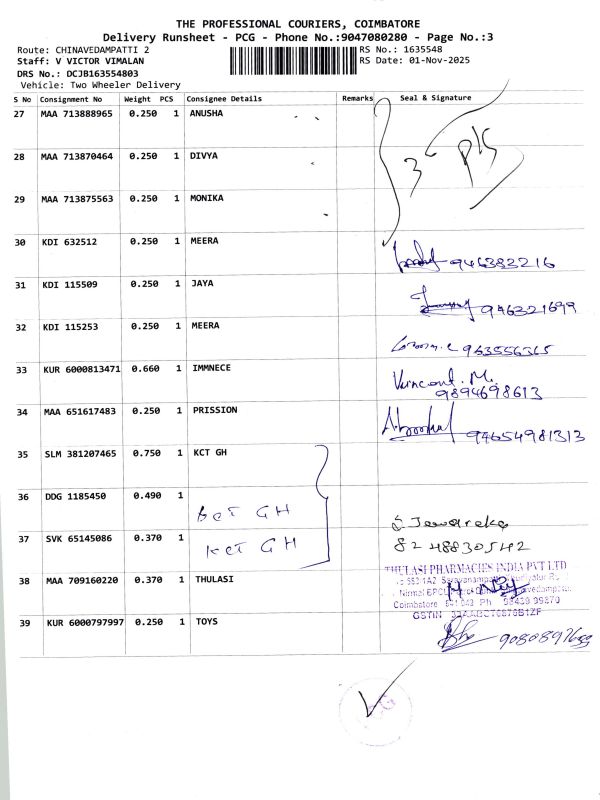 THE PROFESSIONAL COURIERS, COIMBATORE
Delivery Runsheet - PCG - Phone No.:9047080280 - Page No.:3
Route: CHINAVEDAMPATTI 2 RS No.: 1635548
Staff: V VICTOR VIMALAN RS Date: 01-Nov-2025
DRS No.: DCJB163554803
Vehicle: Two Wheeler Delivery
S No Consignment No Weight PCS Consignee Details Remarks Seal & Signature
27 MAA 713888965 0.250 1 ANUSHA
28 MAA 713870464 0.250 1 DIVYA
3 PKS
29 MAA 713875563 0.250 1 MONIKA
30 KDI 632512 0.250 1 MEERA
946382216
31 KDI 115509 0.250 1 JAYA
946321699
32 KDI 115253 0.250 1 MEERA
963556365
33 KUR 6000813471 0.660 1 IMMNECE
Vuincent. M.
9894698613
34 MAA 651617483 0.250 1 PRISSION
94654981313
35 SLM 381207465 0.750 1 KCT GH
36 DDG 1185450 0.490 1
BCT GH
37 SVK 65145086 0.370 1
KCT GH
8248830542
38 MAA 709160220 0.370 1 THULASI
THULASI PHARMACIES INDIA PVT LTD
Coimbatore
GSTIN
39 KUR 6000797997 0.250 1 TOYS